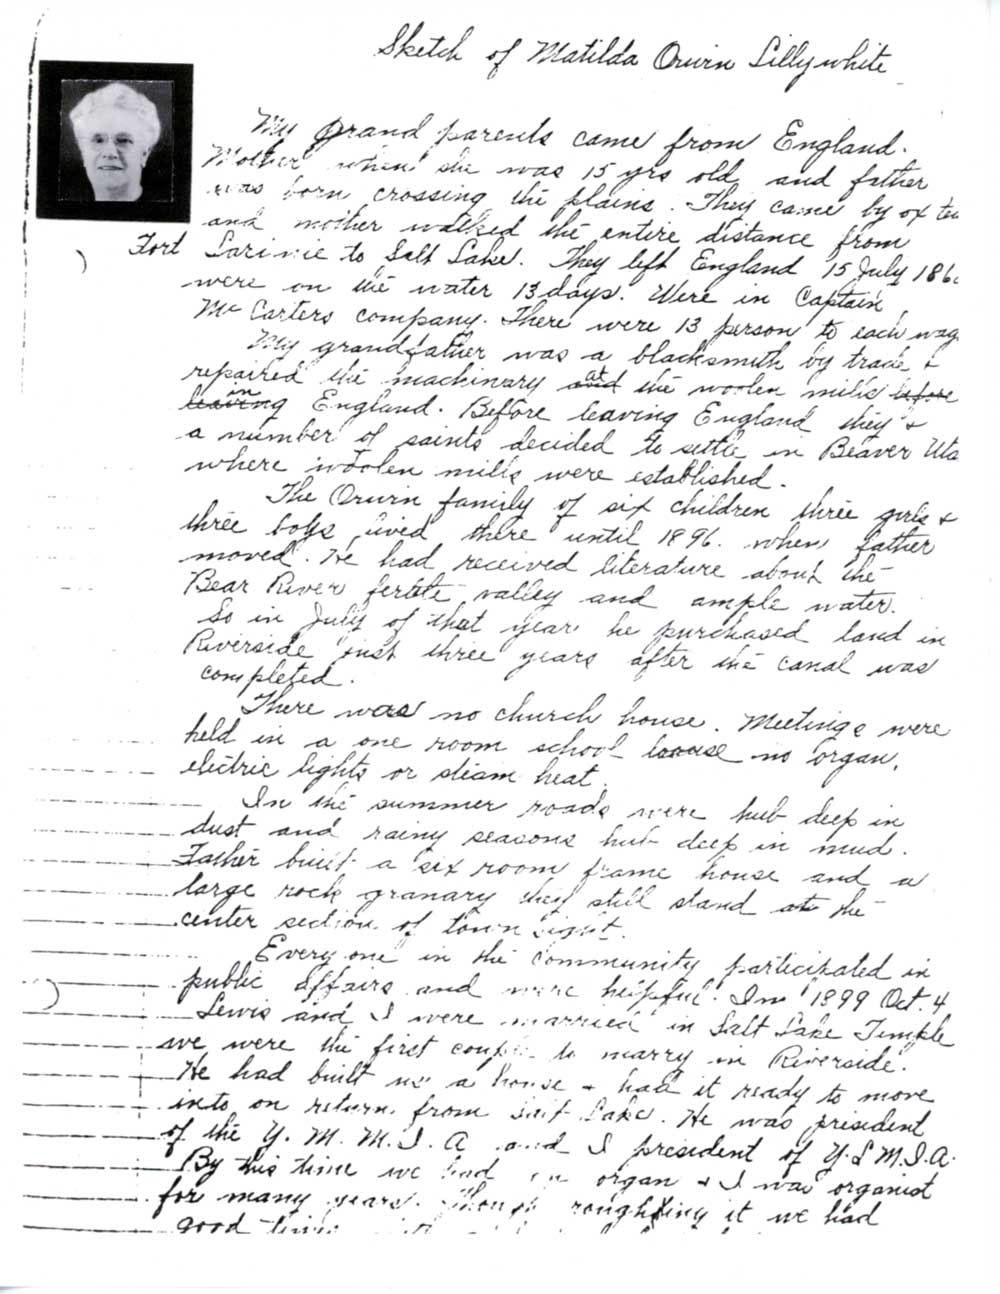 Sketch of Matilda Orwin Lillywhite
My Grand parents came from England.
Mother when she was 15 yrs old and father
was born crossing the plains. They came by ox te
and mother walked the entire distance from
Fort Larimie to Salt Lake. They left England 15 July 186
were on the water 13 days. Were in Captain
Mc Carters company. There were 13 person to each wag
My grandfather was a blacksmith by trade +
repaired the machinary at the woolen mills before
leaving in England. Before leaving England they +
a number of saints decided to settle in Beaver Uta
where woolen mills were established.
The Orwin family of six children three girls +
three boys lived there until 1896. when father
moved. He had received literature about the
Bear River fertile valley and ample water.
So in July of that year he purchased land in
Riverside just three years after the canal was
completed.
There was no church house. Meetings were
held in a one room school house no organ,
electric lights or steam heat.
In the summer roads were hub deep in
dust and rainy seasons hub deep in mud.
Father built a six room frame house and a
large rock granary they still stand at the
center section of town sight.
Every one in the community participated in
public affairs and were helpful. In 1899 Oct. 4
Lewis and I were married in Salt Lake Temple
we were the first couple to marry in Riverside.
He had built us a house + had it ready to move
into on return from Salt Lake. He was president
of the Y. M. M. I. A and I president of Y. L M. I. A.
By this time we had an organ + I was organist
for many years. Though roughing it we had
good times